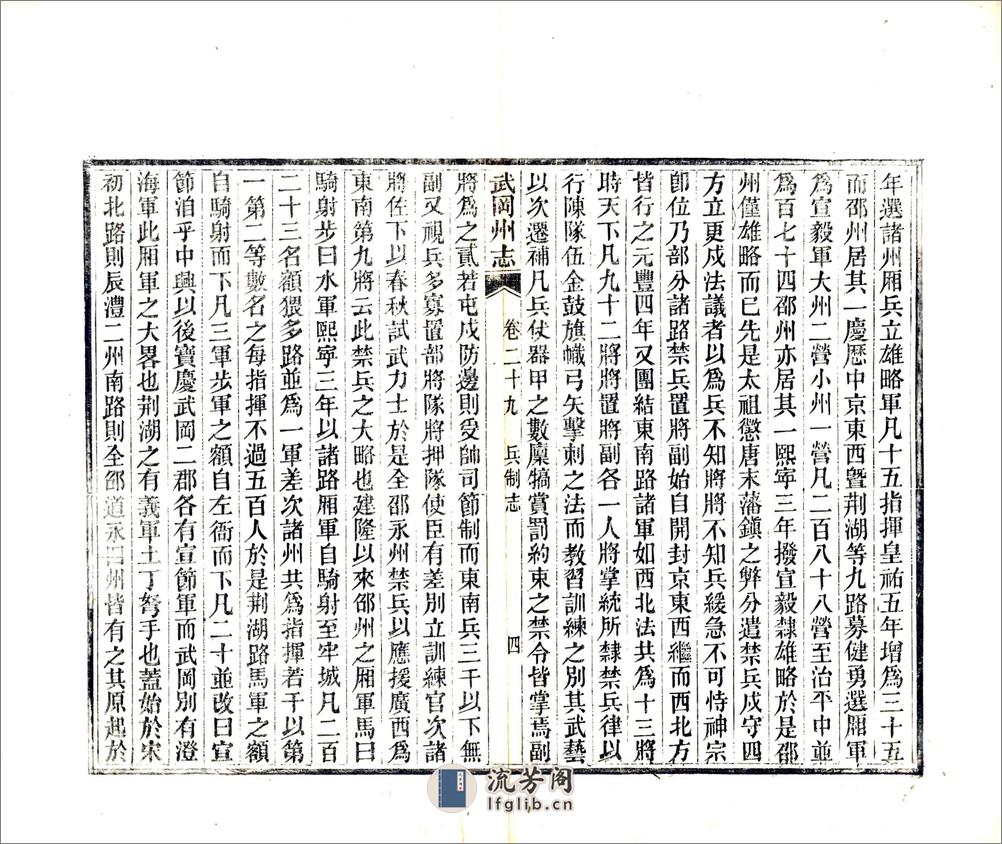 年選諸州厢兵立雄略軍凡十五指揮皇祐五年增爲三十五
而邵州居其一慶歷中京東西曁荆湖等九路募健勇選厢軍
爲宣毅軍大州二營小州一營凡二百八十八營至治平中並
爲百七十四邵州亦居其一熙寧三年撥宣毅隸雄略於是邵
州僅雄略而已先是太祖懲唐末藩鎮之弊分遣禁兵戍守四
方立更戍法議者以爲兵不知將將不知兵緩急不可恃神宗
卽位乃部分諸路禁兵置將副始自開封京東西繼而西北方
皆行之元豐四年又團結東南路諸軍如西北法共爲十三將
時天下凡九十二將將置將副各一人將掌統所隸禁兵律以
行陳隊伍金鼓旗幟弓矢擊刺之法而教習訓練之別其武藝
以次遷補凡兵仗器甲之數廩犒賞罰約束之禁令皆掌焉副
武岡州志
卷二十九 兵制志
四
將爲之貳若屯戍防邊則受帥司節制而東南兵三千以下無
副又視兵多寡置部將隊將押隊使臣有差別立訓練官次諸
將佐下以春秋試武力士於是全邵永州禁兵以應援廣西爲
東南第九將云此禁兵之大略也建隆以來邵州之厢軍馬曰
騎射步曰水軍熙寧三年以諸路厢軍自騎射至牢城凡二百
二十三名額猥多路並爲一軍差次諸州共爲指揮若干以第
一第二等數名之每指揮不過五百人於是荆湖路馬軍之額
自騎射而下凡三軍步軍之額自左衙而下凡二十並改曰宣
節洎乎中興以後寶慶武岡二郡各有宣節軍而武岡別有澄
海軍此厢軍之大畧也荆湖之有義軍土丁弩手也蓋始於宋
初北路則辰澧二州南路則全邵道永四州皆有之其原起於
流芳阁
lfglib.cn